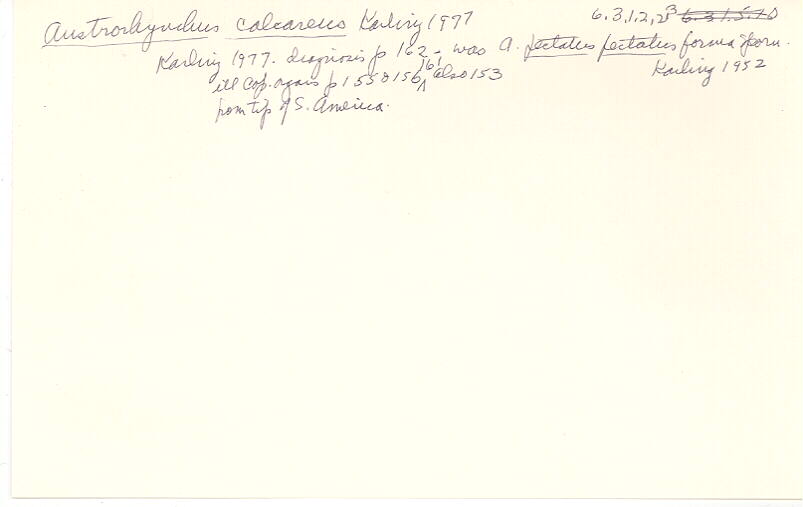 Austrorhynchus calcareus Karling 1977 6.3.1.2.2.3 6.3.1.5.10
Karling 1977. diagnosis p 162 - was A. pectatus pectatus forma
Karling 1952
ill Cop. organ p 155 & 156, 161 also 153
from tip of S. America.